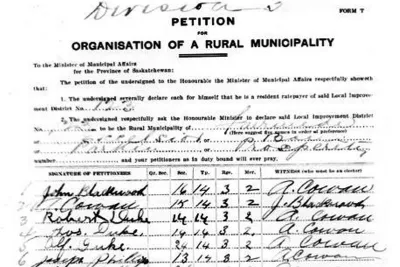 Division 3
FORM 7
PETITION
FOR
ORGANISATION OF A RURAL MUNICIPALITY
To the Minister of Municipal Affairs
for the Province of Saskatchewan:
The petition of the undersigned to the Honourable the Minister of Municipal Affairs respectfully sheweth
that:
1. The undersigned severally declare each for himself that he is a resident ratepayer of said Local Improve-
ment District No.
2. The undersigned respectfully ask the Honourable Minister to declare said Local Improvement District
No. to be the Rural Municipality of
(Here suggest five names in order of preference)
number and your petitioners as in duty bound will ever pray.
SIGNATURE OF PETITIONERS Qr. Sec. Sec. Tp. Rge. Mer. WITNESS (who must be an elector)
1 John Blackwood 16 14 3 2 A. Cowan
2 A. Cowan 15 14 3 2 J. Blackwood
3 Robert Duke 14 14 3 2 A. Cowan
4 Jos. Duke 14 14 3 2. A. Cowan
5 Duke 24 14 3 2 A. Cowan
6 Joseph Phillips 13 14 3 2 A Cowan